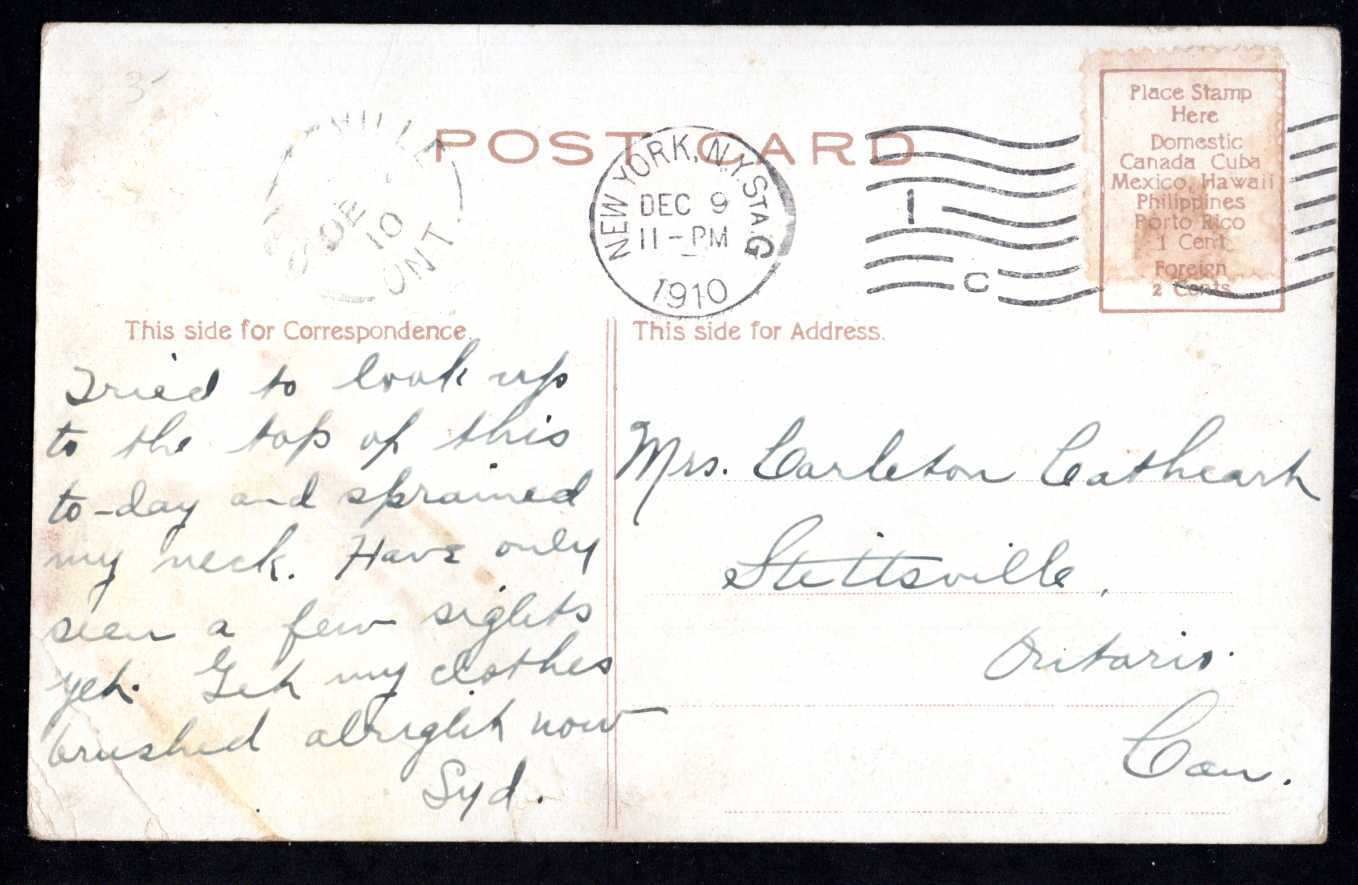 POST CARD
NEW YORK, N.Y. STA. G
DEC 9
11-PM
1910
1
C
VILLE
DE
10
ONT.
Place Stamp
Here
Domestic
Canada Cuba
Mexico, Hawaii
Philippines
Porto Rico
1 Cent
Foreign
2 Cents
This side for Correspondence.
Tried to look up
to the top of this
to-day and sprained
my neck. Have only
seen a few sights
yet. Get my clothes
brushed alright now
Syd.
This side for Address.
Mrs. Carleton Cathcart
Stittsville,
Ontario.
Can.